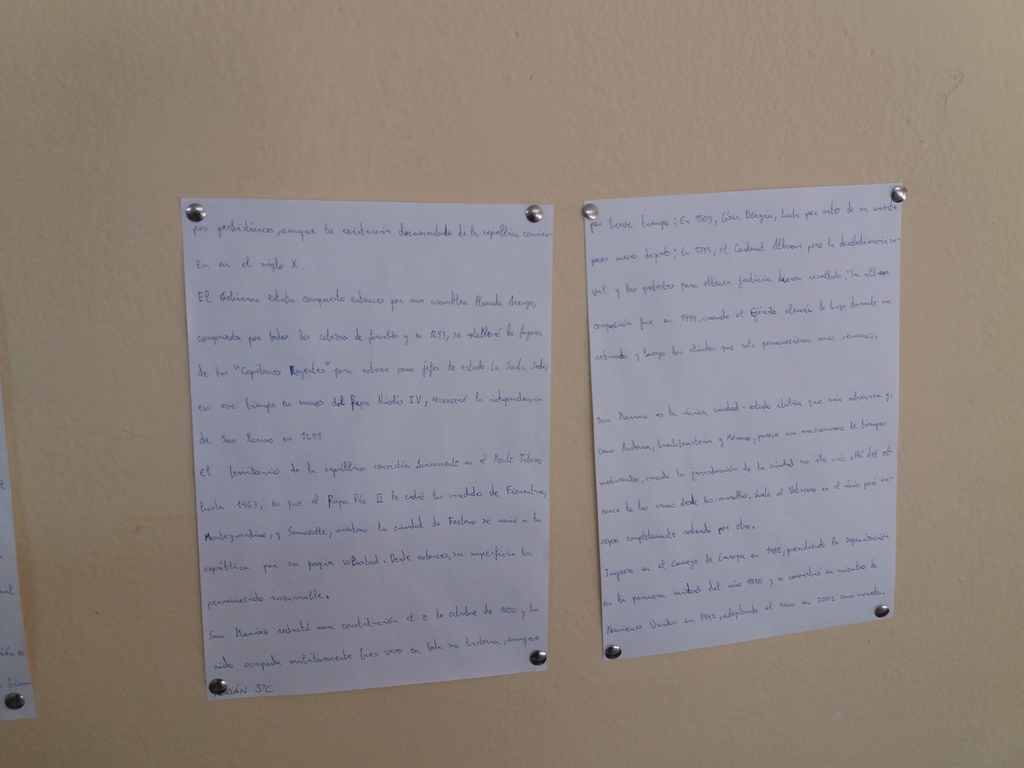 pos prehistóricos, aunque la existencia documentada de la república comien-
za en el siglo X.
El Gobierno estaba compuesto entonces por una asamblea llamada Arengo,
compuesta por todos los cabezas de familia y en 1243, se estableció la figura
de los "Capitanes Regentes" para actuar como jefes de estado. La Santa Sede,
en ese tiempo en manos del Papa Nicolás IV, reconoció la independencia
de San Marino en 1291
El territorio de la república consistía únicamente en el Monte Titano
hasta 1463, en que el Papa Pío II le cedió las ciudades de Fiorentino,
Montegiardino, y Serravalle, mientras la ciudad de Faetano se unió a la
república por su propia voluntad. Desde entonces, su superficie ha
permanecido invariable.
San Marino redactó una constitución el 8 de octubre de 1600 y ha
sido ocupada militarmente tres veces en toda su historia, aunque
ADRIÁN 3ºC
por breve tiempo: En 1503, César Borgia, hasta poco antes de su muerte
meses después; En 1739, el Cardenal Alberoni pero la desobediencia ci-
vil y las protestas para obtener justicia dieron resultado; Su última
ocupación fue en 1944, cuando el Ejército alemán lo hizo durante su
retirada y luego los aliados que solo permanecieron unas semanas.
San Marino es la única ciudad-estado que aún sobrevive y,
como Andorra, Liechtenstein y Mónaco, parece un anacronismo de tiempos
medievales, cuando la jurisdicción de la ciudad no iba más allá del al-
cance de las desde las murallas, desde el Vaticano es el único país eu-
ropeo completamente rodeado por otro.
Ingresó en el Consejo de Europa en 1988, presidiendo la organización
en la primera mitad del año 1990 y se convirtió en miembro de
Naciones Unidas en 1992, adoptando el euro en 2002 como moneda.